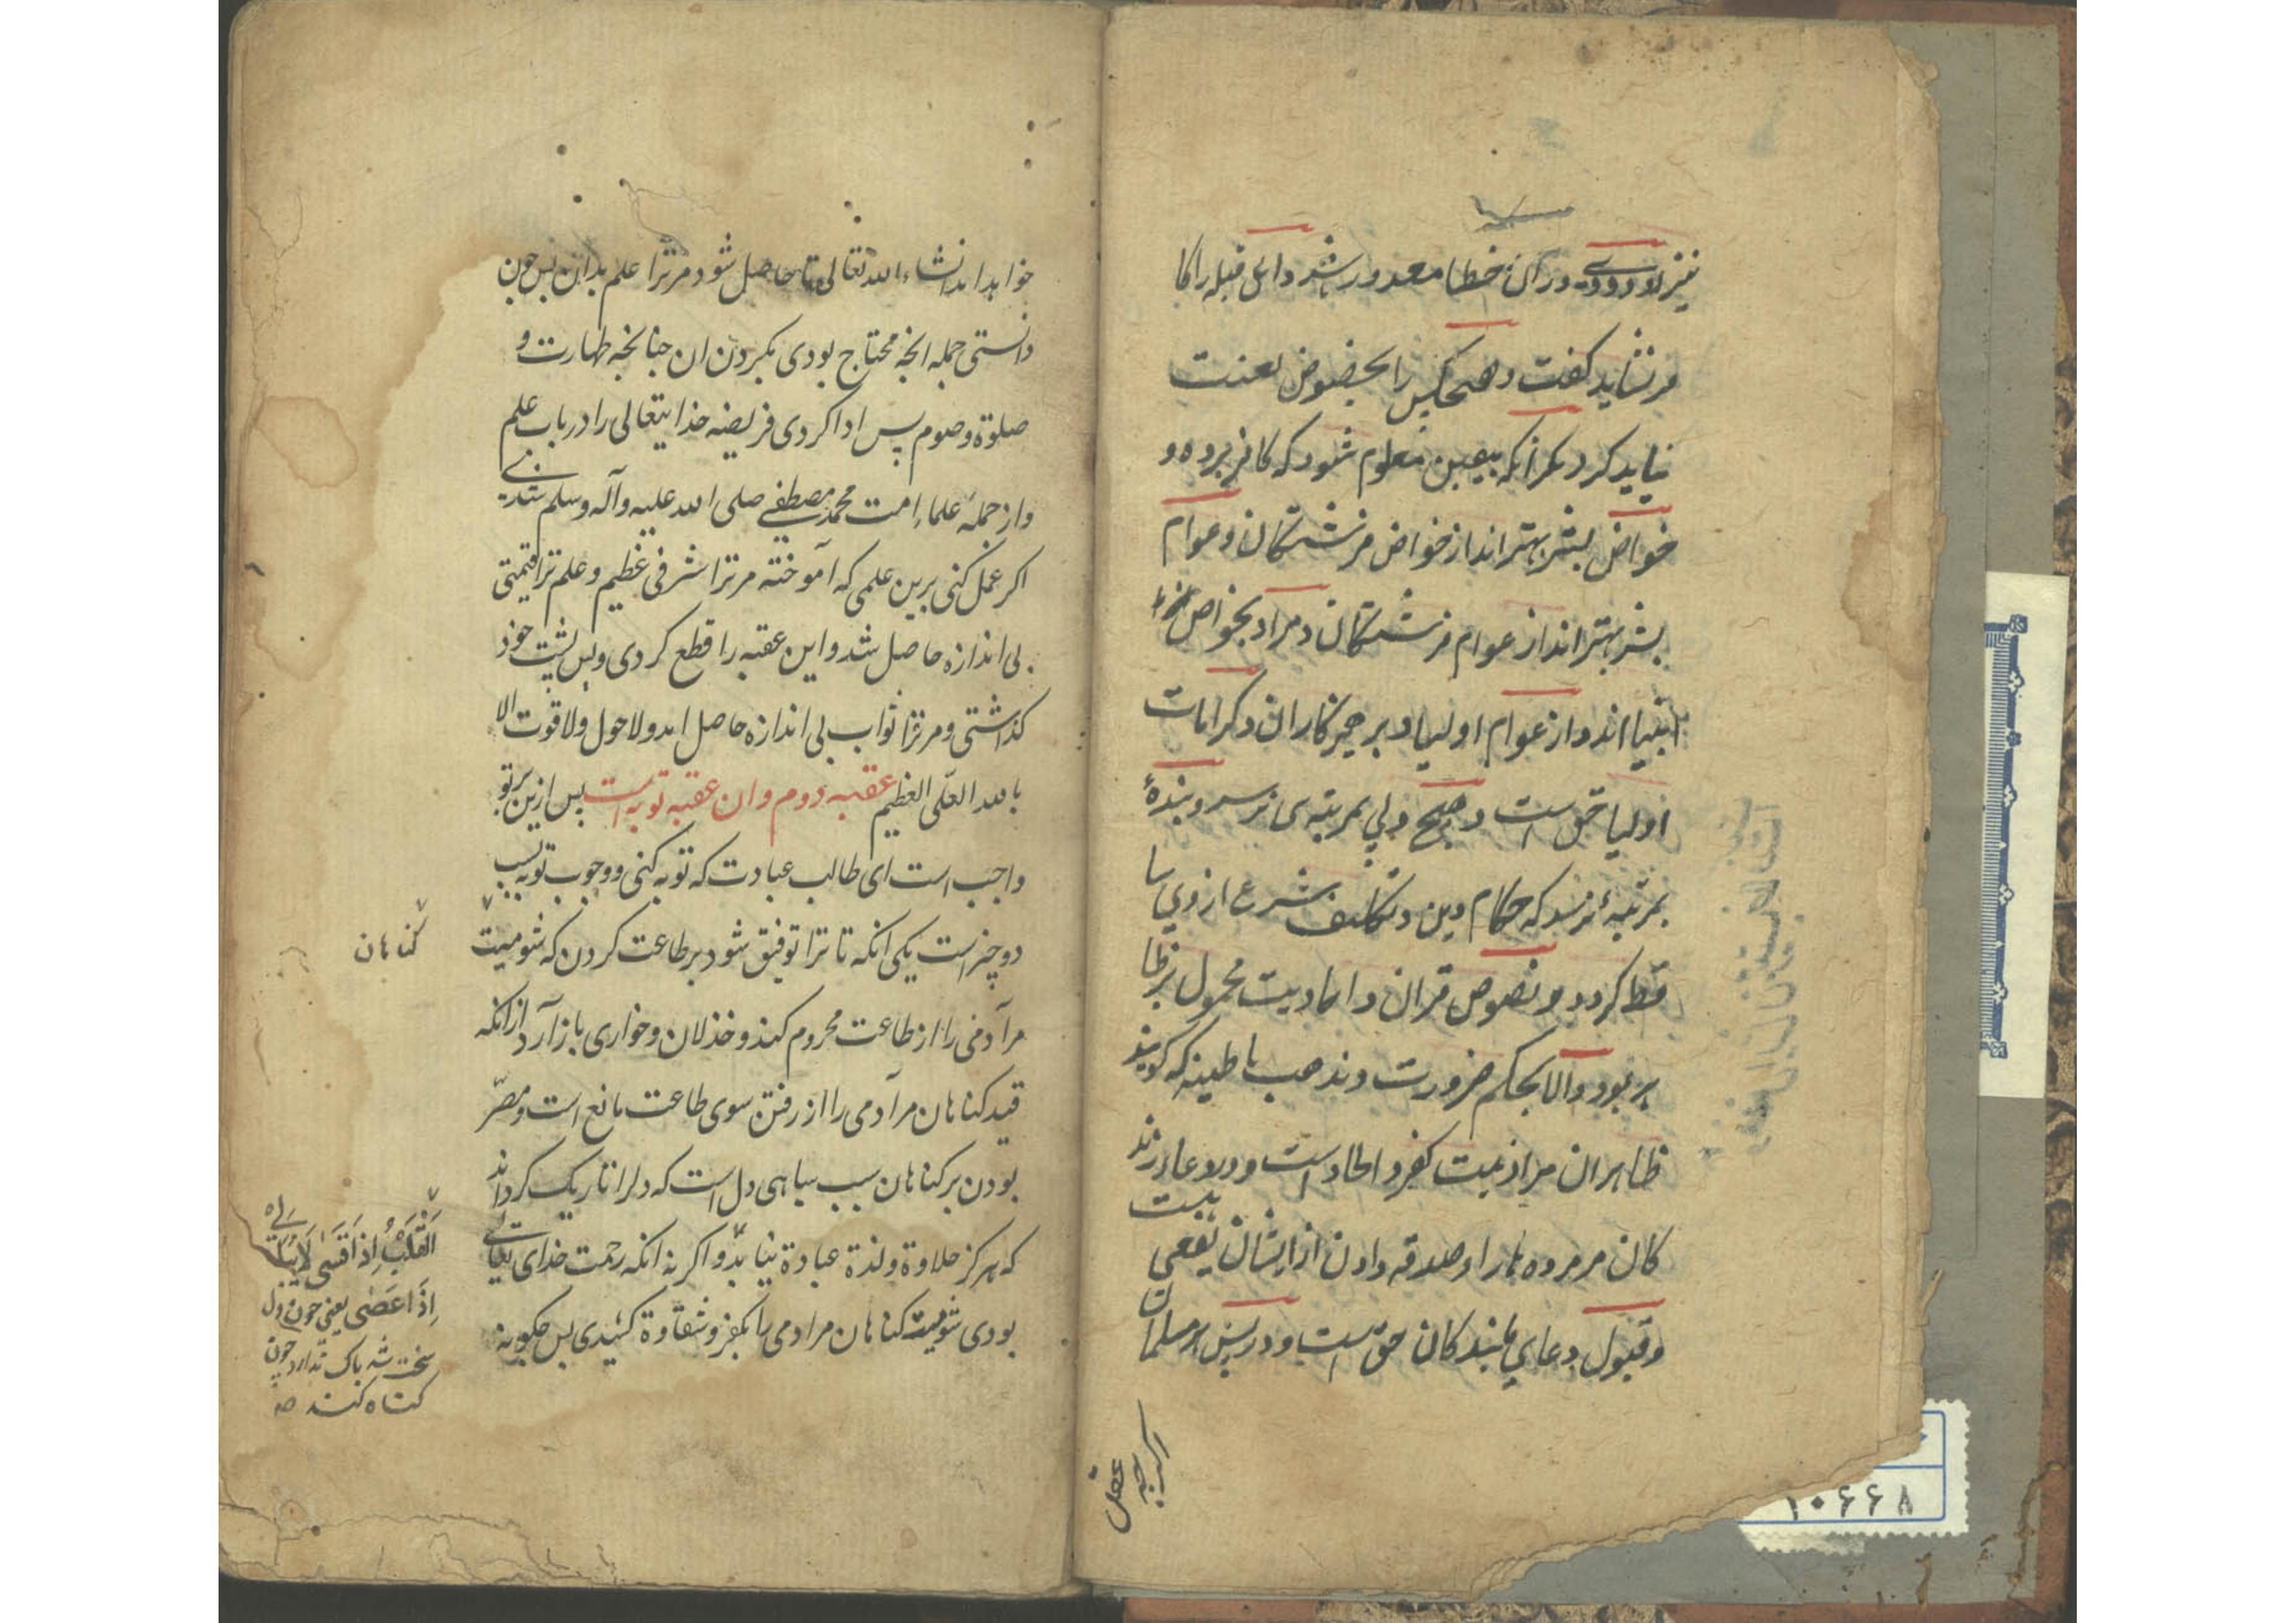 نیز لا ودی در آن خطا معذور باشد و اهل قبله را کا
فر نشاید گفت و هیچکس را بخصوص لعنت
نباید کرد مکر آنکه بیقین معلوم شود که کافر برده و
خواص بشر بهتر اند از خواص فرشتکان و عوام
بشر بهتر اند از عوام فرشتکان و مراد بخواص
انبیا اند و از عوام اولیا و پرهیزکاران و کرامات
اولیا حق است و هیچ ولی بمرتبه نبی نرسد و بندهٔ
بمرتبهٔ نرسد که احکام دین و تکالیف شرع از وی سا
قط کردد و نصوص قران و احادیث محمول بر ظا
هر بود و الا بحکم ضرورت و مذهب باطینه که کویند
ظاهر ان مراد نیست کفر و الحاد است و در دعا زند
کان مر مرده ها را و صدقه دادن از ایشان نفعی است
و قبول دعای بندکان حق است و در پس هر مسلمان
اکرچه
عقل
خواهد اند انشاء الله تعالی تا حاصل شود مر ترا علم بدان پس چون
دانستی جمله انچه محتاج بودی بکردن ان چنانچه طهارت و
صلوة و صوم پس ادا کردی فریضه خدایتعالی را در باب علم
و از جمله علماء امت محمد مصطفی صلی الله علیه وآله وسلم شدی
اکر عمل کنی برین علمی که آموخته مر ترا شرفی عظیم و علم ترا قیمتی
بی اندازه حاصل شد و این عقبه را قطع کردی و پس پشت خود
کذاشتی و مر ترا ثواب بی اندازه حاصل امد و لا حول ولا قوت الا
بالله العلّی العظیم عقبه دوم و ان عقبه توبه است پس ازین بر تو
واجب است ای طالب عبادت که توبه کنی و وجوب توبه بسبب
دو چیز است یکی انکه تا ترا توفیق شود بر طاعت کردن که شومیت
کناهان
مر آدمی را از طاعت محروم کند و خذلان و خواری باز آرد از انکه
قید کناهان مر آدمی را از رفتن سوی طاعت مانع است و مصرّ
بودن بر کناهان سبب سیاهی دل است که دلرا تاریک کرداند
که هرکز حلاوة و لذة عبادة نیابد و اکر نه انکه رحمت خدای تعالی
بودی شومیت کناهان مر ادمی را بکفر و شقاوة کشیدی پس چکونه
القَلبُ اِذا قَسَی لَا یُبَالی
اِذَا عَصَی یعنی چون دل
سخت شد باک ندارد چون
کناه کند
۱۰۶۶۸